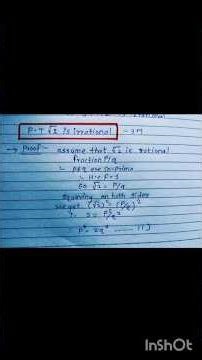 P.T √2 is irrational - 3M
→ Proof:- assume that √2 is rational
fraction P/q
P & q are co-prime
H.C.F = 1
So √2 = P/q
Squaring on both sides
we get (√2)² = (P/q)²
2 = P²/q²
P² = 2q² ------ (1)
InShot